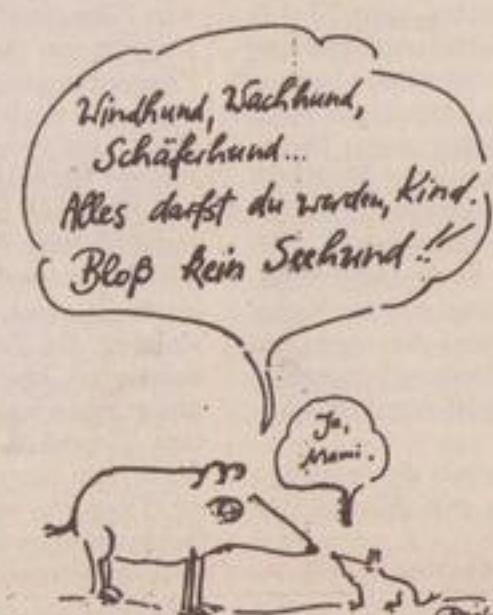 Windhund, Wachhund,
Schäferhund...
Alles darfst du werden, Kind.
Bloß kein Seehund!!
Ja,
Mami.